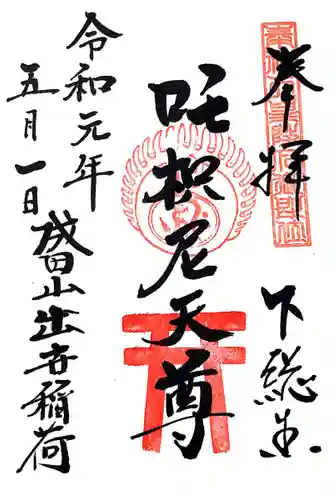 奉拝
下総
吒枳尼天尊
令和元年
五月一日
成田山出世稲荷